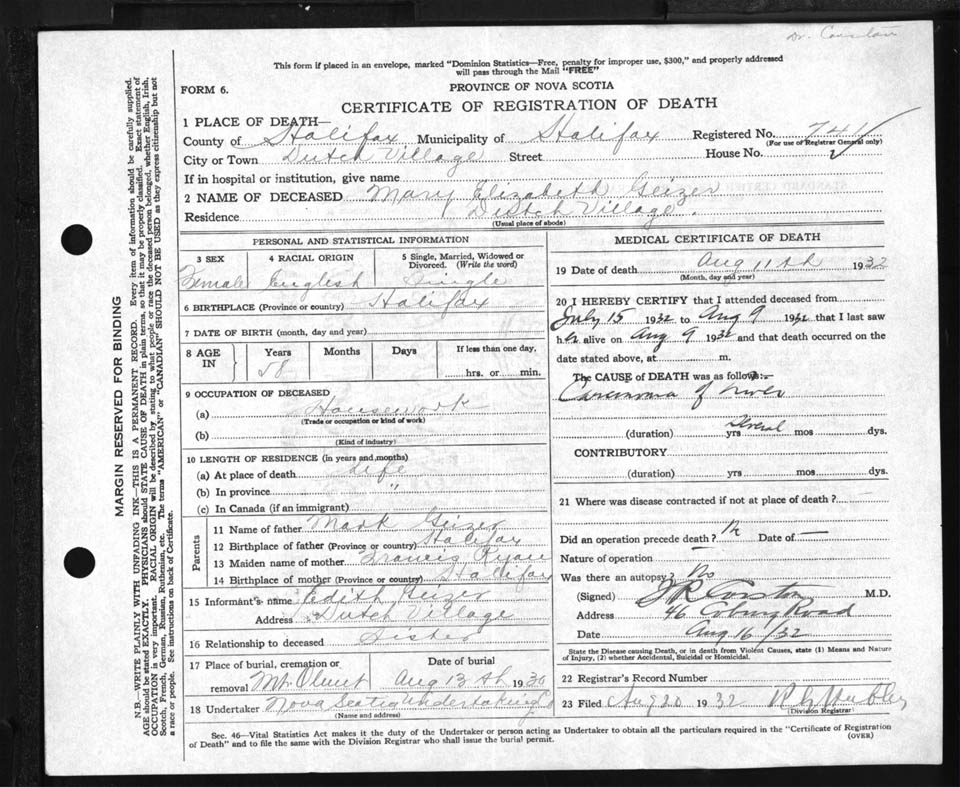 Dr. Corston
This form if placed in an envelope, marked "Dominion Statistics—Free, penalty for improper use, $300," and properly addressed
will pass through the Mail "FREE"
FORM 6.
PROVINCE OF NOVA SCOTIA
CERTIFICATE OF REGISTRATION OF DEATH
1 PLACE OF DEATH—
County of Halifax Municipality of Halifax Registered No. 74
(For use of Registrar General only)
City or Town Dutch Village Street House No.
If in hospital or institution, give name
2 NAME OF DECEASED Mary Elizabeth Geizer
Residence Dutch Village.
(Usual place of abode)
PERSONAL AND STATISTICAL INFORMATION
3 SEX 4 RACIAL ORIGIN 5 Single, Married, Widowed or
Divorced. (Write the word)
Female English Single
6 BIRTHPLACE (Province or country) Halifax
7 DATE OF BIRTH (month, day and year)
8 AGE IN Years Months Days If less than one day,
58 hrs. or min.
9 OCCUPATION OF DECEASED
(a) Housework
(Trade or occupation or kind of work)
(b)
(Kind of industry)
10 LENGTH OF RESIDENCE (in years and months)
(a) At place of death Life
(b) In province "
(c) In Canada (if an immigrant)
Parents
11 Name of father Mark Geizer
12 Birthplace of father (Province or country) Halifax
13 Maiden name of mother Francis Ryan
14 Birthplace of mother (Province or country) Halifax
15 Informant's name Edith Geizer
Address Dutch Village
16 Relationship to deceased Sister
17 Place of burial, cremation or Date of burial
removal Mt. Olivet Aug 13th 1930
18 Undertaker Nova Scotia Undertaking Co
(Name and address)
MEDICAL CERTIFICATE OF DEATH
19 Date of death Aug 11th 1932
(Month, day and year)
20 I HEREBY CERTIFY that I attended deceased from
July 15 1932 to Aug 9 1932 that I last saw
her alive on Aug 9 1932 and that death occurred on the
date stated above, at m.
The CAUSE of DEATH was as follows:—
Carcinoma of liver
(duration) yrs Several mos dys.
CONTRIBUTORY
(duration) yrs mos dys.
21 Where was disease contracted if not at place of death?
Did an operation precede death? Date of —
Nature of operation
Was there an autopsy? No
(Signed) J R Corston M.D.
Address 46 Coburg Road
Date Aug 16/32
State the Disease causing Death, or in death from Violent Causes, state (1) Means and Nature
of Injury, (2) whether Accidental, Suicidal or Homicidal.
22 Registrar's Record Number
23 Filed Aug 20 1932
(Division Registrar)
Sec. 46—Vital Statistics Act makes it the duty of the Undertaker or person acting as Undertaker to obtain all the particulars required in the "Certificate of Registration
of Death" and to file the same with the Division Registrar who shall issue the burial permit. (OVER)
MARGIN RESERVED FOR BINDING
N.B.—WRITE PLAINLY WITH UNFADING INK—THIS IS A PERMANENT RECORD. Every item of information should be carefully supplied.
AGE should be stated EXACTLY. PHYSICIANS should STATE CAUSE OF DEATH in plain terms, so that it may be properly classified. Exact statement of
OCCUPATION is very important. RACIAL ORIGIN will be described by stating to what people or race the deceased person belonged, whether English, Irish,
Scotch, French, German, Russian, Ruthenian, etc. The terms "AMERICAN" or "CANADIAN" SHOULD NOT BE USED as they express citizenship but not
a race or people. See instructions on back of Certificate.